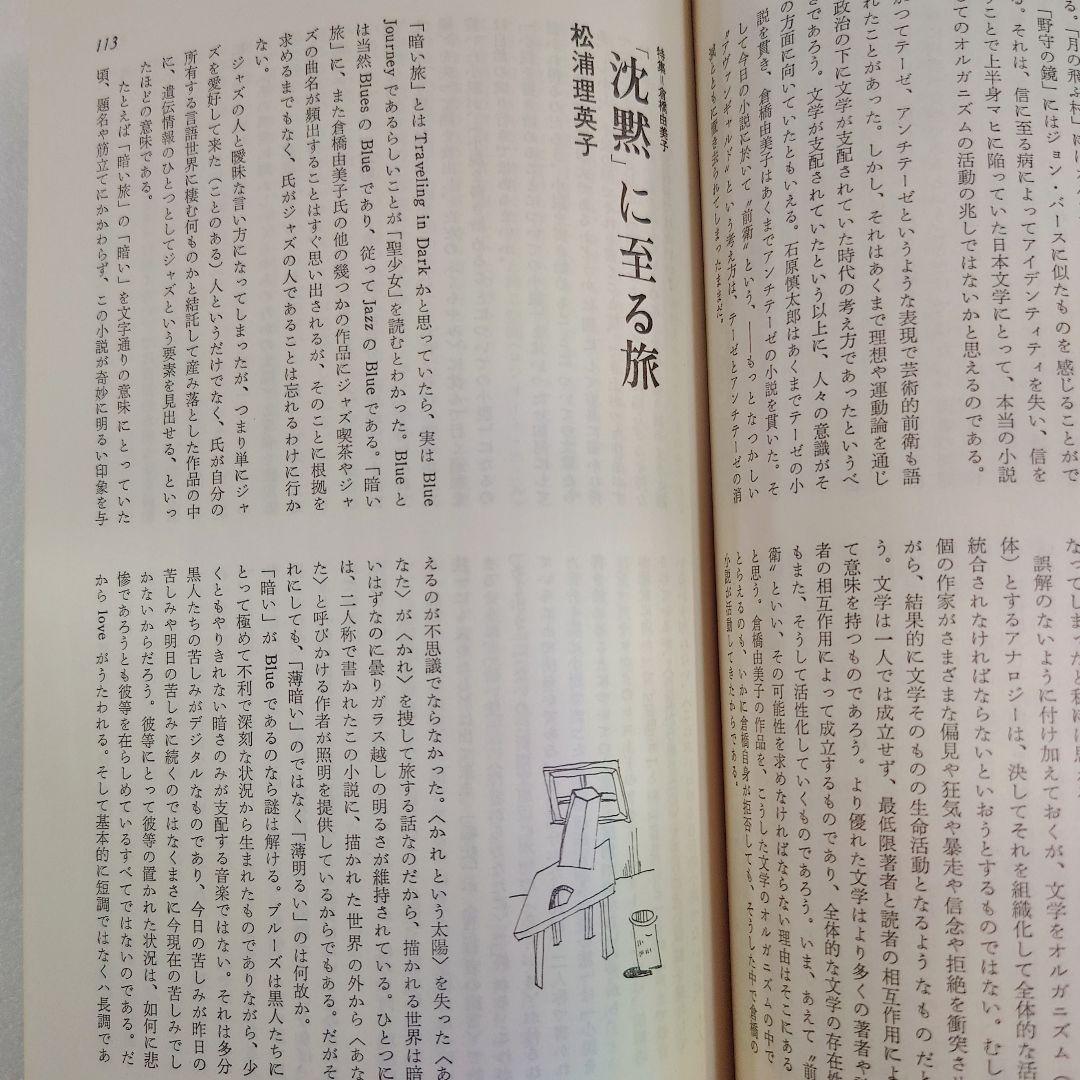 る。「月の飛ぶ村」には
「野守の鏡」にはジョン・バースに似たものを感じる
る。それは、信に至る病によってアイデンティティを失い、信を
うことで上半身マヒに陥っていた日本文学にとって、本当の小説
してのオルガニズムの活動の兆しではないかと思えるのである。
かつてテーゼ、アンチテーゼというような表現で芸術的前衛も語
れたことがあった。しかし、それはあくまで理想や運動論を通じ
政治の下に文学が支配されていた時代の考え方であったというべ
きであろう。文学が支配されていたという以上に、人々の意識がそ
の方面に向いていたともいえる。石原慎太郎はあくまでテーゼの小
説を貫き、倉橋由美子はあくまでアンチテーゼの小説を貫いた。そ
して今日の小説に於いて〝前衛〟という、――もっとなつかしい
〝アヴァンギャルド〟という考え方は、テーゼとアンチテーゼの消
滅とともに置き去られてしまったままだ。
誤解のないように付け加えておくが、文学をオルガニズム
体〉とするアナロジーは、決してそれを組織化して全体的な活
統合されなければならないといおうとするものではない。むし
個の作家がさまざまな偏見や狂気や暴走や信念や拒絶を衝突させ
がら、結果的に文学そのものの生命活動となるようなものだと
う。文学は一人では成立せず、最低限著者と読者の相互作用によ
て意味を持つものであろう。より優れた文学はより多くの著者や
者の相互作用によって成立するものであり、全体的な文学の存在
もまた、そうして活性化していくものであろう。いま、あえて〝前
衛〟といい、その可能性を求めなければならない理由はそこにある
と思う。倉橋由美子の作品を、こうした文学のオルガニズムの中で
とらえるのも、いかに倉橋自身が拒否しても、そうした中で倉橋の
小説が活動してきたからである。
特集＝倉橋由美子
「沈黙」に至る旅
松浦理英子
「暗い旅」とは Traveling in Dark かと思っていたら、実は Blue
Journey であるらしいことが「聖少女」を読むとわかった。Blue と
は当然 Blues の Blue であり、従って Jazz の Blue である。「暗い
旅」に、また倉橋由美子氏の他の幾つかの作品にジャズ喫茶やジャ
ズの曲名が頻出することはすぐ思い出されるが、そのことに根拠を
求めるまでもなく、氏がジャズの人であることは忘れるわけに行か
ない。
ジャズの人と曖昧な言い方になってしまったが、つまり単にジャ
ズを愛好して来た（ことのある）人というだけでなく、氏が自分の
所有する言語世界に棲む何ものかと結託して産み落とした作品の中
に、遺伝情報のひとつとしてジャズという要素を見出せる、といっ
たほどの意味である。
たとえば「暗い旅」の「暗い」を文字通りの意味にとっていた
頃、題名や筋立てにかかわらず、この小説が奇妙に明るい印象を与
えるのが不思議でならなかった。〈かれという太陽〉を失った〈あ
なた〉が〈かれ〉を捜して旅する話なのだから、描かれる世界は暗
いはずなのに曇りガラス越しの明るさが維持されている。ひとつに
は、二人称で書かれたこの小説に、描かれた世界の外から〈あな
た〉と呼びかける作者が照明を提供しているからでもある。だがそ
れにしても、「薄暗い」のではなく「薄明るい」のは何故か。
「暗い」が Blue であるのなら謎は解ける。ブルーズは黒人たちに
とって極めて不利で深刻な状況から生まれたものでありながら、少
くともやりきれない暗さのみが支配する音楽ではない。それは多分
黒人たちの苦しみがデジタルなものであり、今日の苦しみが昨日の
苦しみや明日の苦しみに続くのではなくまさに今現在の苦しみでし
かないからだろう。彼等にとって彼等の置かれた状況は、如何に悲
惨であろうとも彼等を在らしめているすべてではないのである。だ
から love がうたわれる。そして基本的に短調ではなくハ長調であ
113